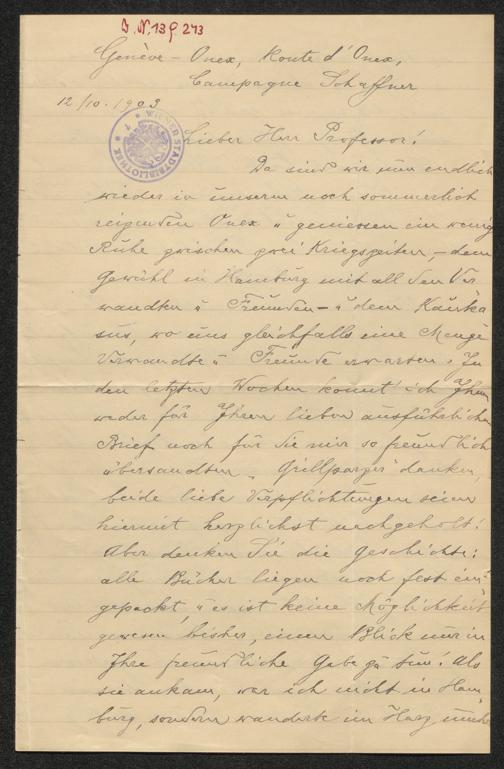 J. N. 139 243
Genève – Onex, Route d'Onex,
Campagne Schaffner
12/10. 1903
WIENER STADTBIBLIOTHEK
Lieber Herr Professor!
Da sind wir nun endlich
wieder in unserm noch sommerlich
reizenden Onex u geniessen ein wenig
Ruhe zwischen zwei Kriegszeiten, – dem
Gewühl in Hamburg mit all den Ver
wandten u Freunden – u dem Kauka
sus, wo uns gleichfalls eine Menge
Verwandte u Freunde erwarten. In
den letzten Wochen konnt' ich Ihnen
weder für Ihren lieben ausführlichen
Brief noch für die mir so freundlich
übersandten „Grillparzer" danken,
beide liebe Verpflichtungen seien
hiermit herzlichst nachgeholt!
Aber denken Sie die Geschichte:
alle Bücher liegen noch fest ein-
gepackt, u es ist keine Möglichkeit
gewesen bisher, einen Blick nur in
Ihre freundliche Gabe zu tun! Als
sie ankam, war ich nicht in Ham
burg, sondern wanderte im Harz